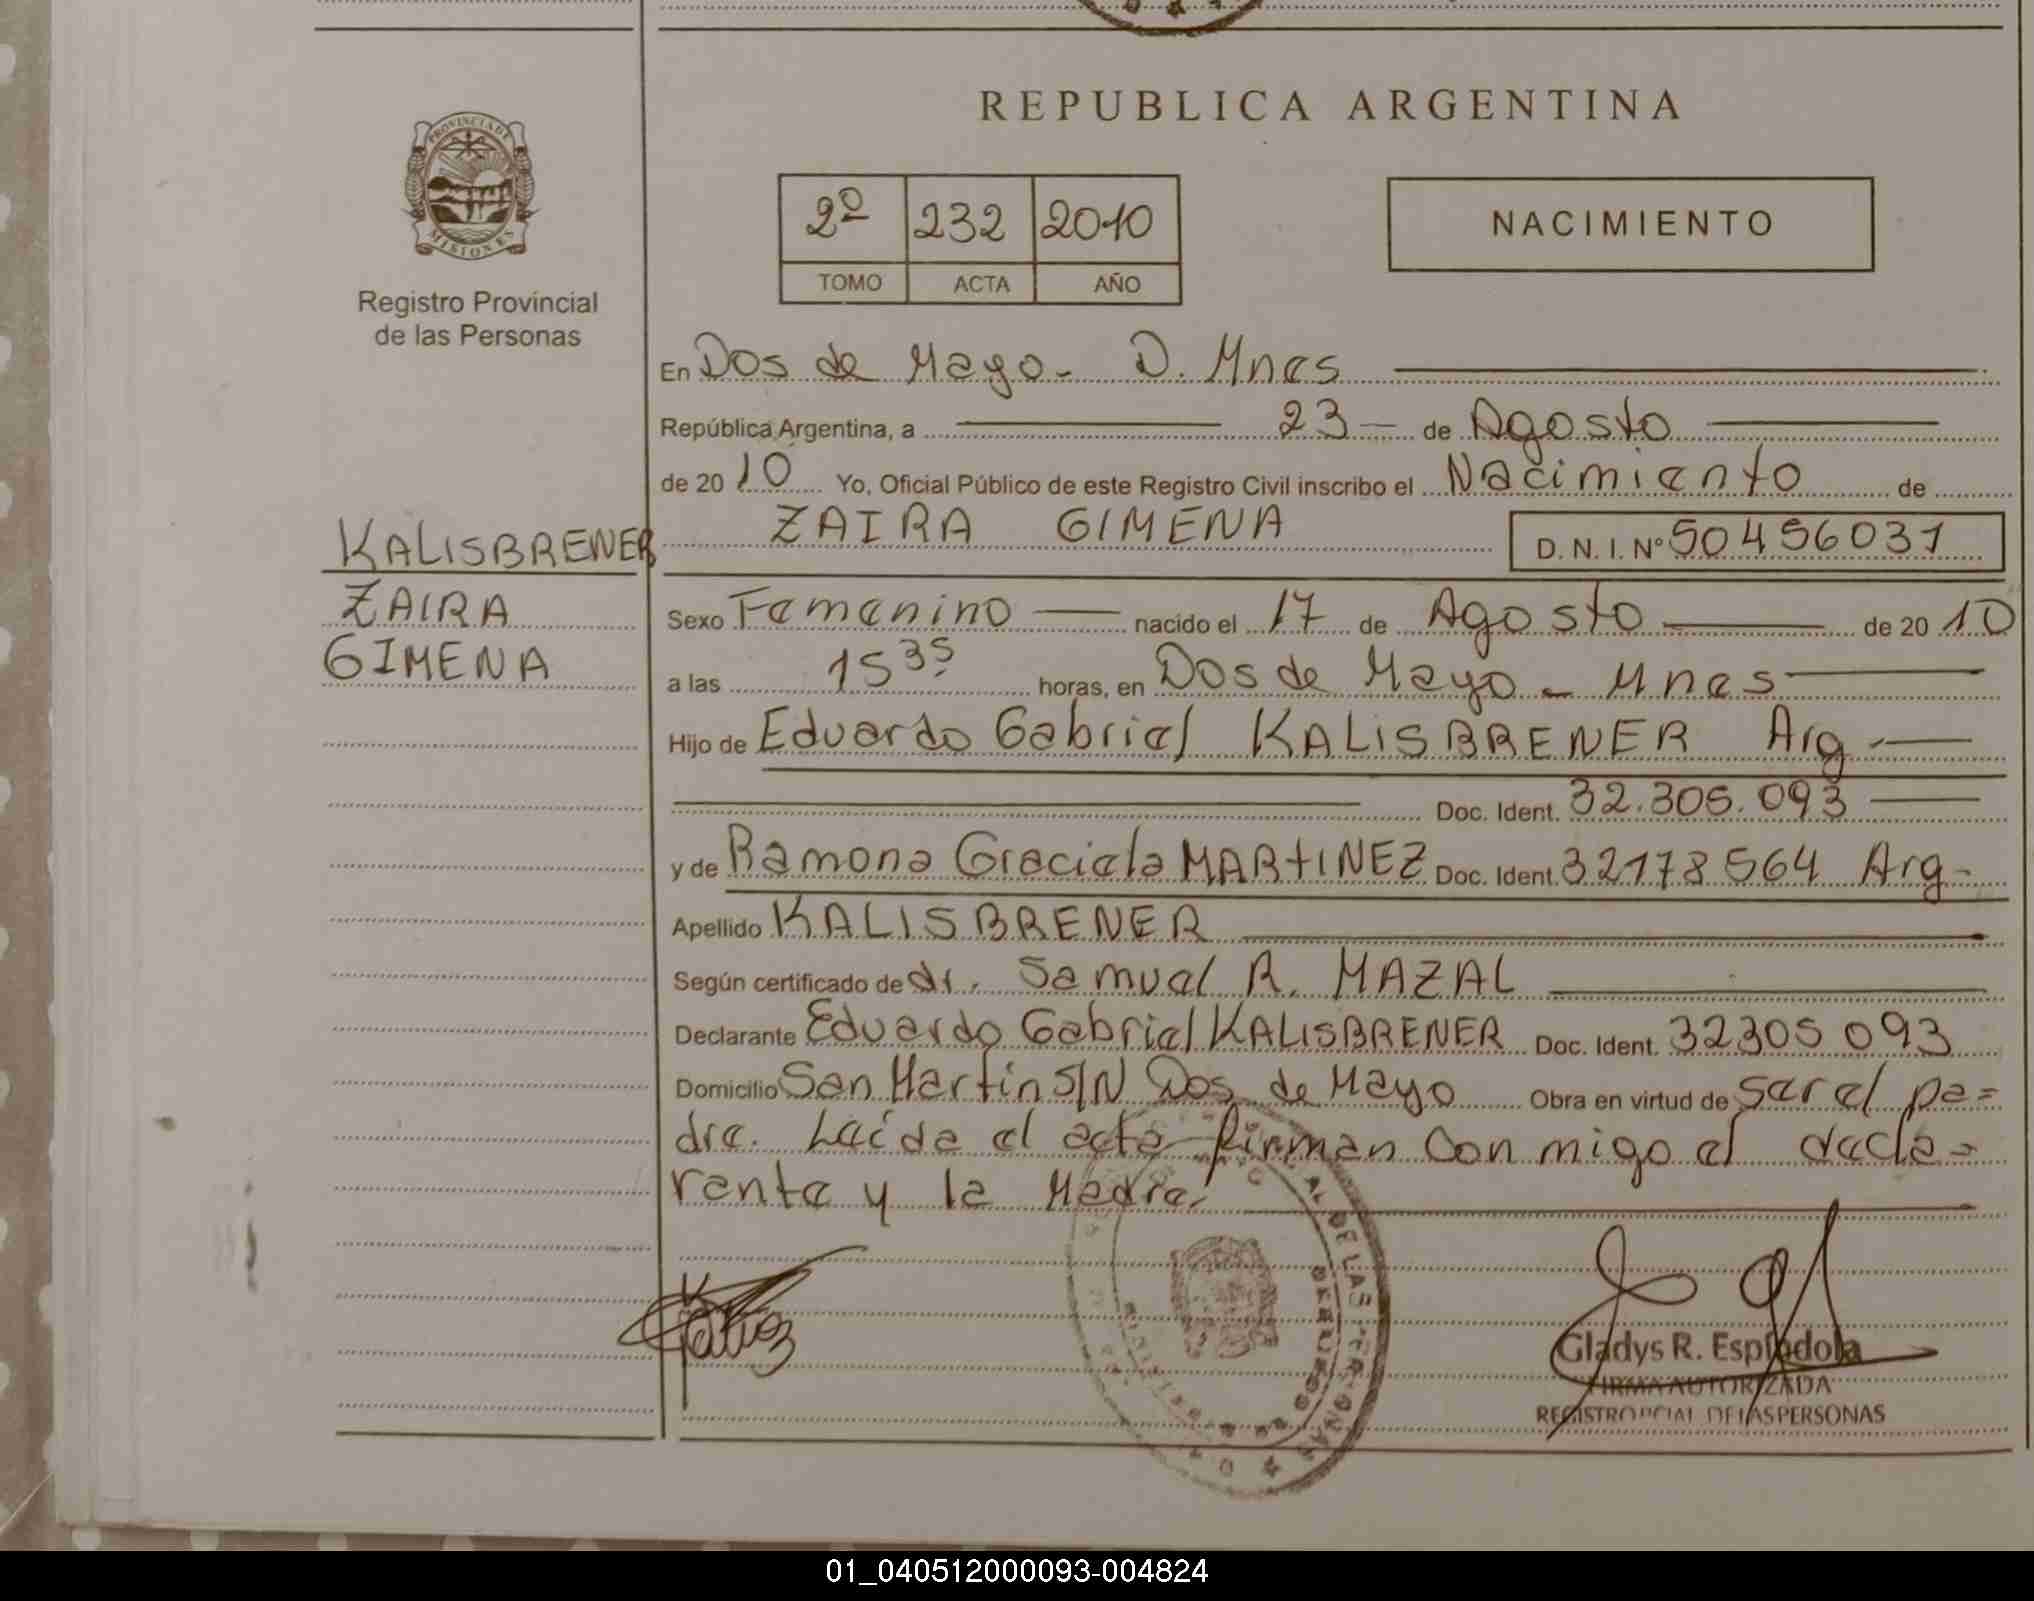 REPUBLICA ARGENTINA
PROVINCIA DE
MISIONES
Registro Provincial
de las Personas
2º 232 2010
TOMO ACTA AÑO
NACIMIENTO
En Dos de Mayo - D. Mnes
República Argentina, a 23 de Agosto
de 2010 Yo, Oficial Público de este Registro Civil inscribo el Nacimiento de
ZAIRA GIMENA D. N. I. Nº 50456031
KALISBRENER
ZAIRA
GIMENA
Sexo Femenino nacido el 17 de Agosto de 2010
a las 15 35 horas, en Dos de Mayo - Mnes
Hijo de Eduardo Gabriel KALISBRENER Arg -
Doc. Ident. 32.305.093
y de Ramona Graciela MARTINEZ Doc. Ident. 32178564 Arg -
Apellido KALISBRENER
Según certificado de dr. Samuel R. MAZAL
Declarante Eduardo Gabriel KALISBRENER Doc. Ident. 32305093
Domicilio San Martin S/N Dos de Mayo Obra en virtud de ser el pa=
dre. Leída el acta firman con migo el decla=
rante y la Madre.
Gladys R. Espíndola
FIRMA AUTORIZADA
REGISTRO PCIAL. DE LAS PERSONAS
01_040512000093-004824